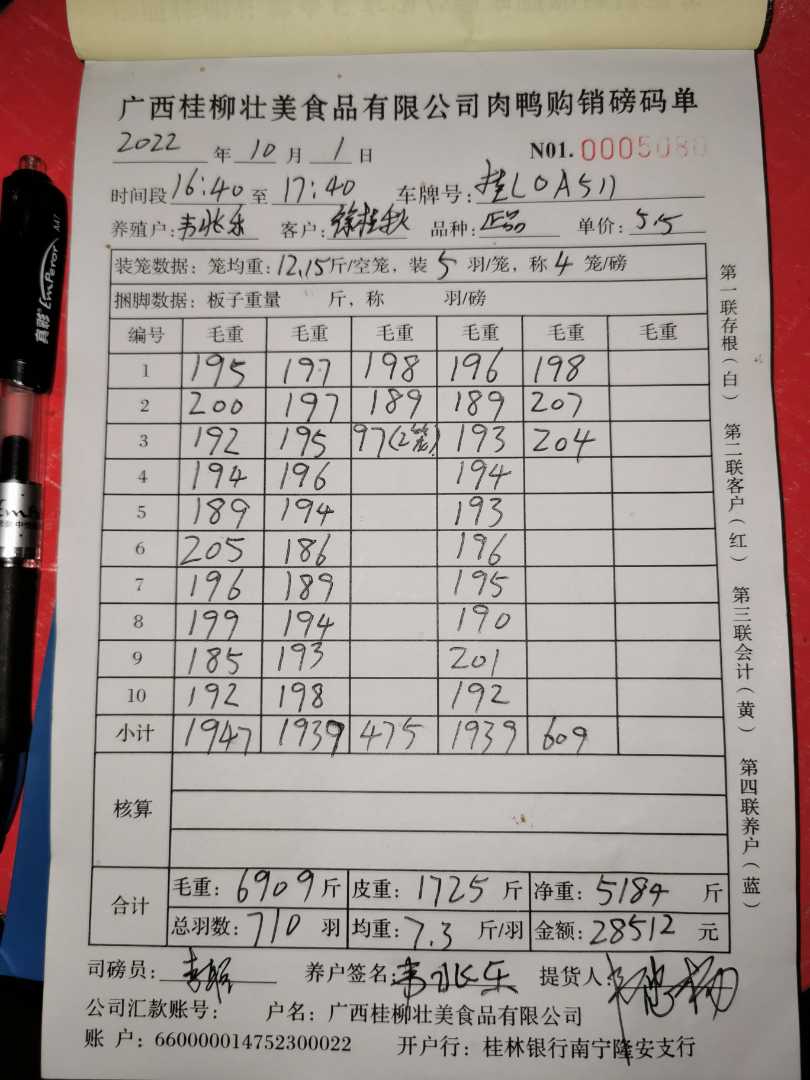 广西桂柳壮美食品有限公司肉鸭购销磅码单
2022 年 10 月 1 日 N01. 0005080
时间段 16:40 至 17:40 车牌号: 桂L0A511
养殖户: 韦兆乐 客户: 徐桂秋 品种: 正品 单价: 5.5
装笼数据: 笼均重: 12.15 斤/空笼, 装 5 羽/笼, 称 4 笼/磅
捆脚数据: 板子重量 斤, 称 羽/磅
编号 毛重 毛重 毛重 毛重 毛重 毛重
1 195 197 198 196 198
2 200 197 189 189 207
3 192 195 97(2笼) 193 204
4 194 196 194
5 189 194 193
6 205 186 196
7 196 189 195
8 199 194 190
9 185 193 201
10 192 198 192
小计 1947 1939 475 1939 609
核算
合计 毛重: 6909 斤 皮重: 1725 斤 净重: 5184 斤
总羽数: 710 羽 均重: 7.3 斤/羽 金额: 28512 元
司磅员: 养户签名: 韦兆乐 提货人:
公司汇款账号: 户名: 广西桂柳壮美食品有限公司
账 户: 660000014752300022 开户行: 桂林银行南宁隆安支行
第一联存根(白) 第二联客户(红) 第三联会计(黄) 第四联养户(蓝)
真彩 Emperor A47